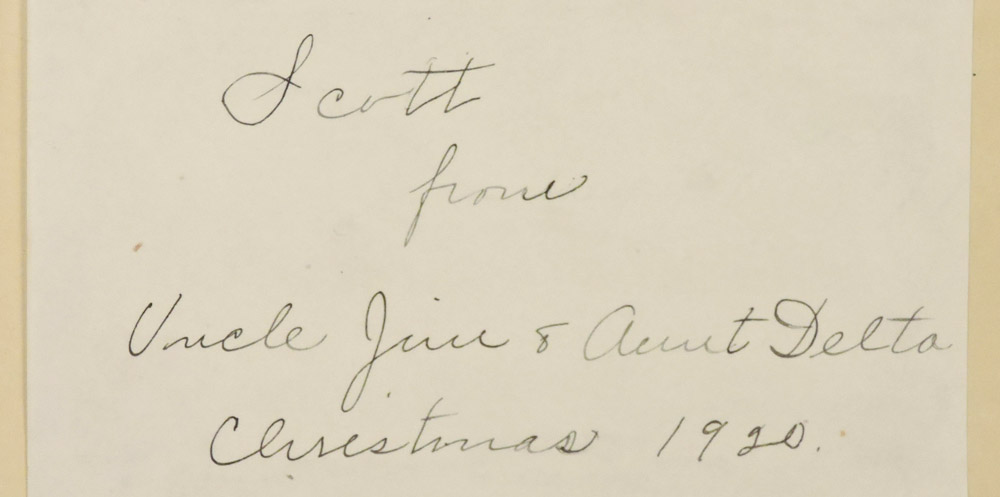 Scott
from
Uncle Jim & Aunt Delta
Christmas 1920.